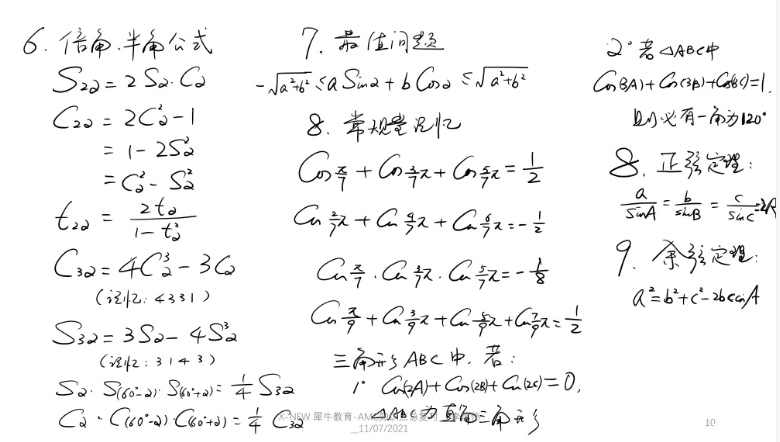 6. 倍角.半角公式
S₂α = 2Sα·Cα
C₂α = 2C²α - 1
= 1 - 2S²α
= C²α - S²α
t₂α = 2tα / (1 - t²α)
C₃α = 4C³α - 3Cα
(记忆: 4331)
S₃α = 3Sα - 4S³α
(记忆: 3143)
Sα · S(60°-α) · S(60°+α) = 1/4 S₃α
Cα · C(60°-α) · C(60°+α) = 1/4 C₃α
7. 最值问题
-√(a²+b²) ≤ a Sinα + b Cosα ≤ √(a²+b²)
8. 常规量记忆
Cos π/7 + Cos 3/7π + Cos 5/7π = 1/2
Cos 2/7π + Cos 4/7π + Cos 6/7π = -1/2
Cos π/7 · Cos 3/7π · Cos 5/7π = -1/8
Cos π/9 + Cos 3/9π + Cos 5/9π + Cos 7/9π = 1/2
三角形ABC中, 若:
1° Cos(2A) + Cos(2B) + Cos(2C) = 0,
△ABC为直角三角形
2° 若△ABC中
Cos(3A) + Cos(3B) + Cos(3C) = 1,
则必有一角为120°
8. 正弦定理:
a/SinA = b/sinB = c/sinc = 2R
9. 余弦定理:
a² = b² + c² - 2bccosA
X-NEW 犀牛教育-AM
11/07/2021
10